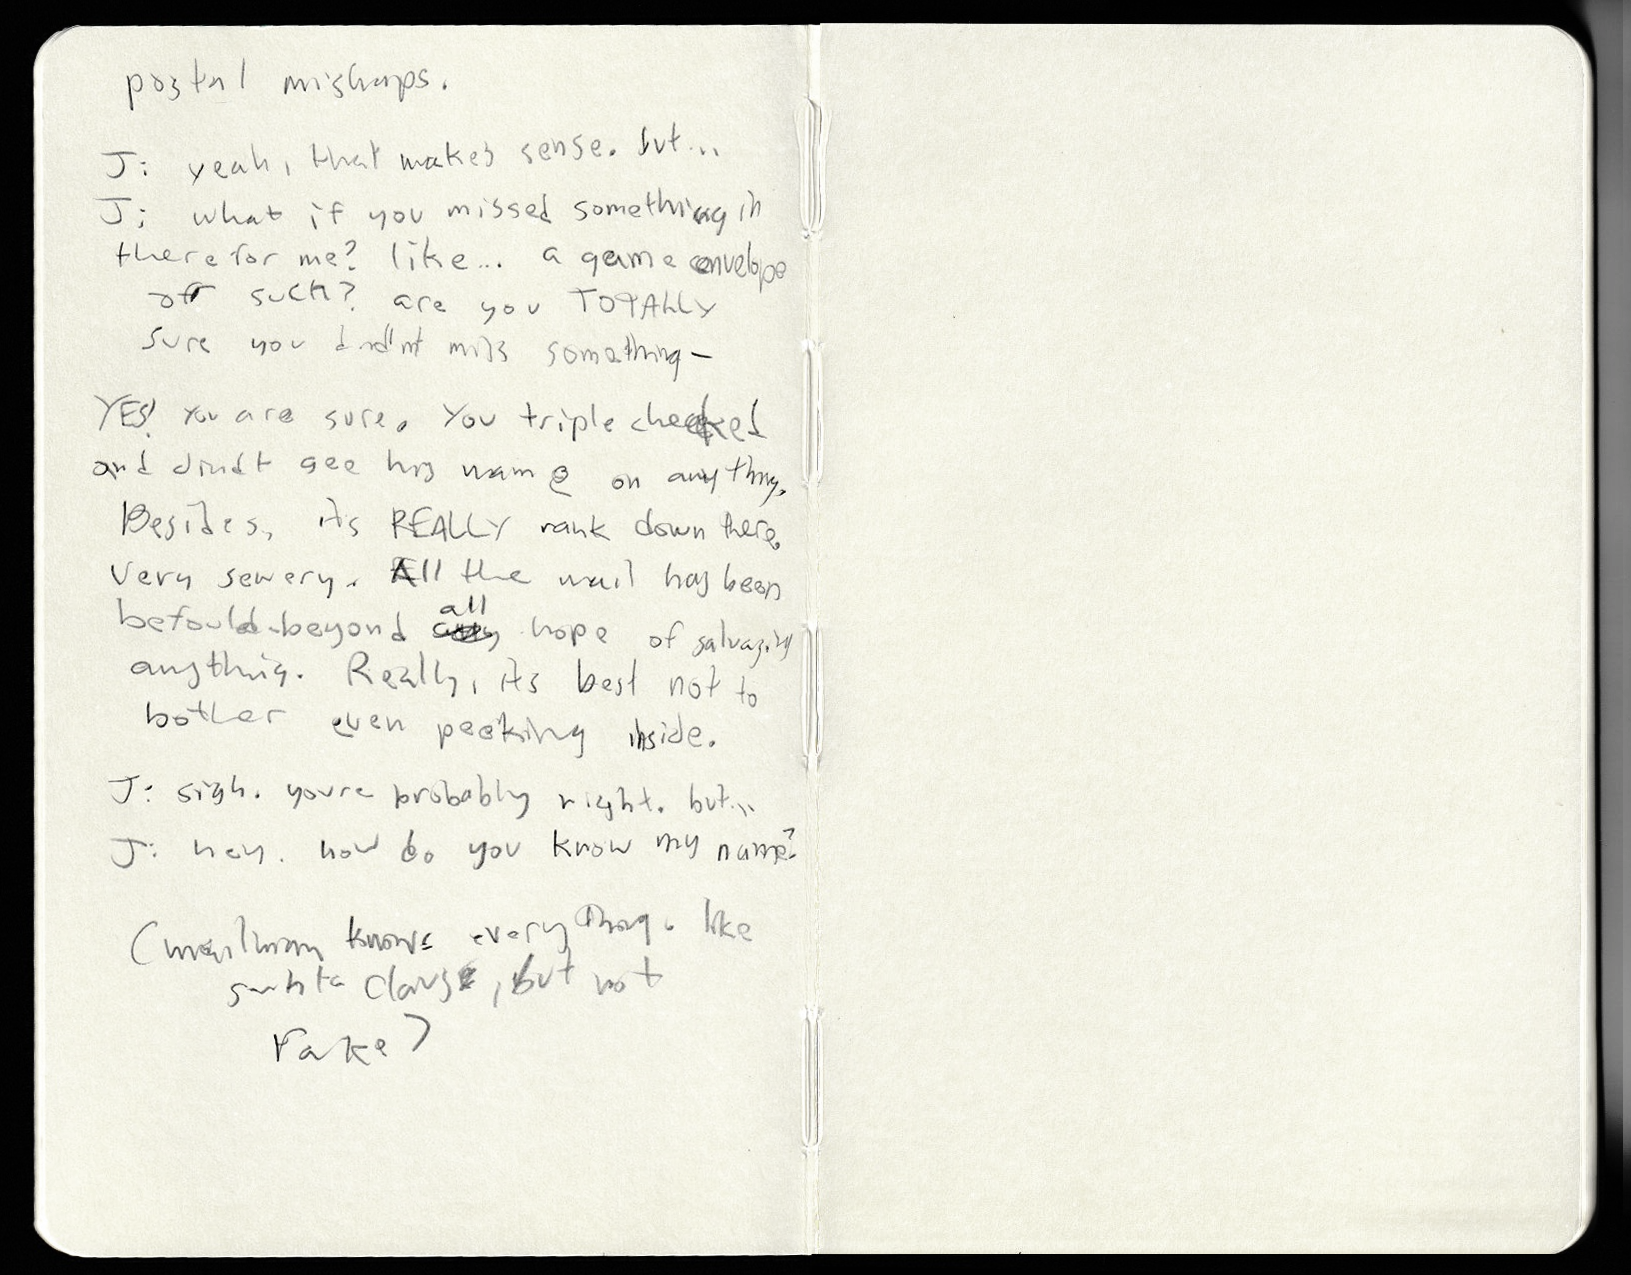 postal mishaps.
J: yeah, that makes sense. but...
J: what if you missed something in
there for me? like... a game envelope
or such? are you TOTALLY
sure you didn't miss something—
YES! You are sure. You triple checked
and dindt see his name on anything.
Besides, its REALLY rank down there.
Very sewery. All the mail has been
befould beyond all hope of salvaging
anything. Really, its best not to
bother even peeking inside.
J: sigh. youre probably right. but...
J: hey. how do you know my name?
(mailman knows everything. like
santa claus, but not
fake)